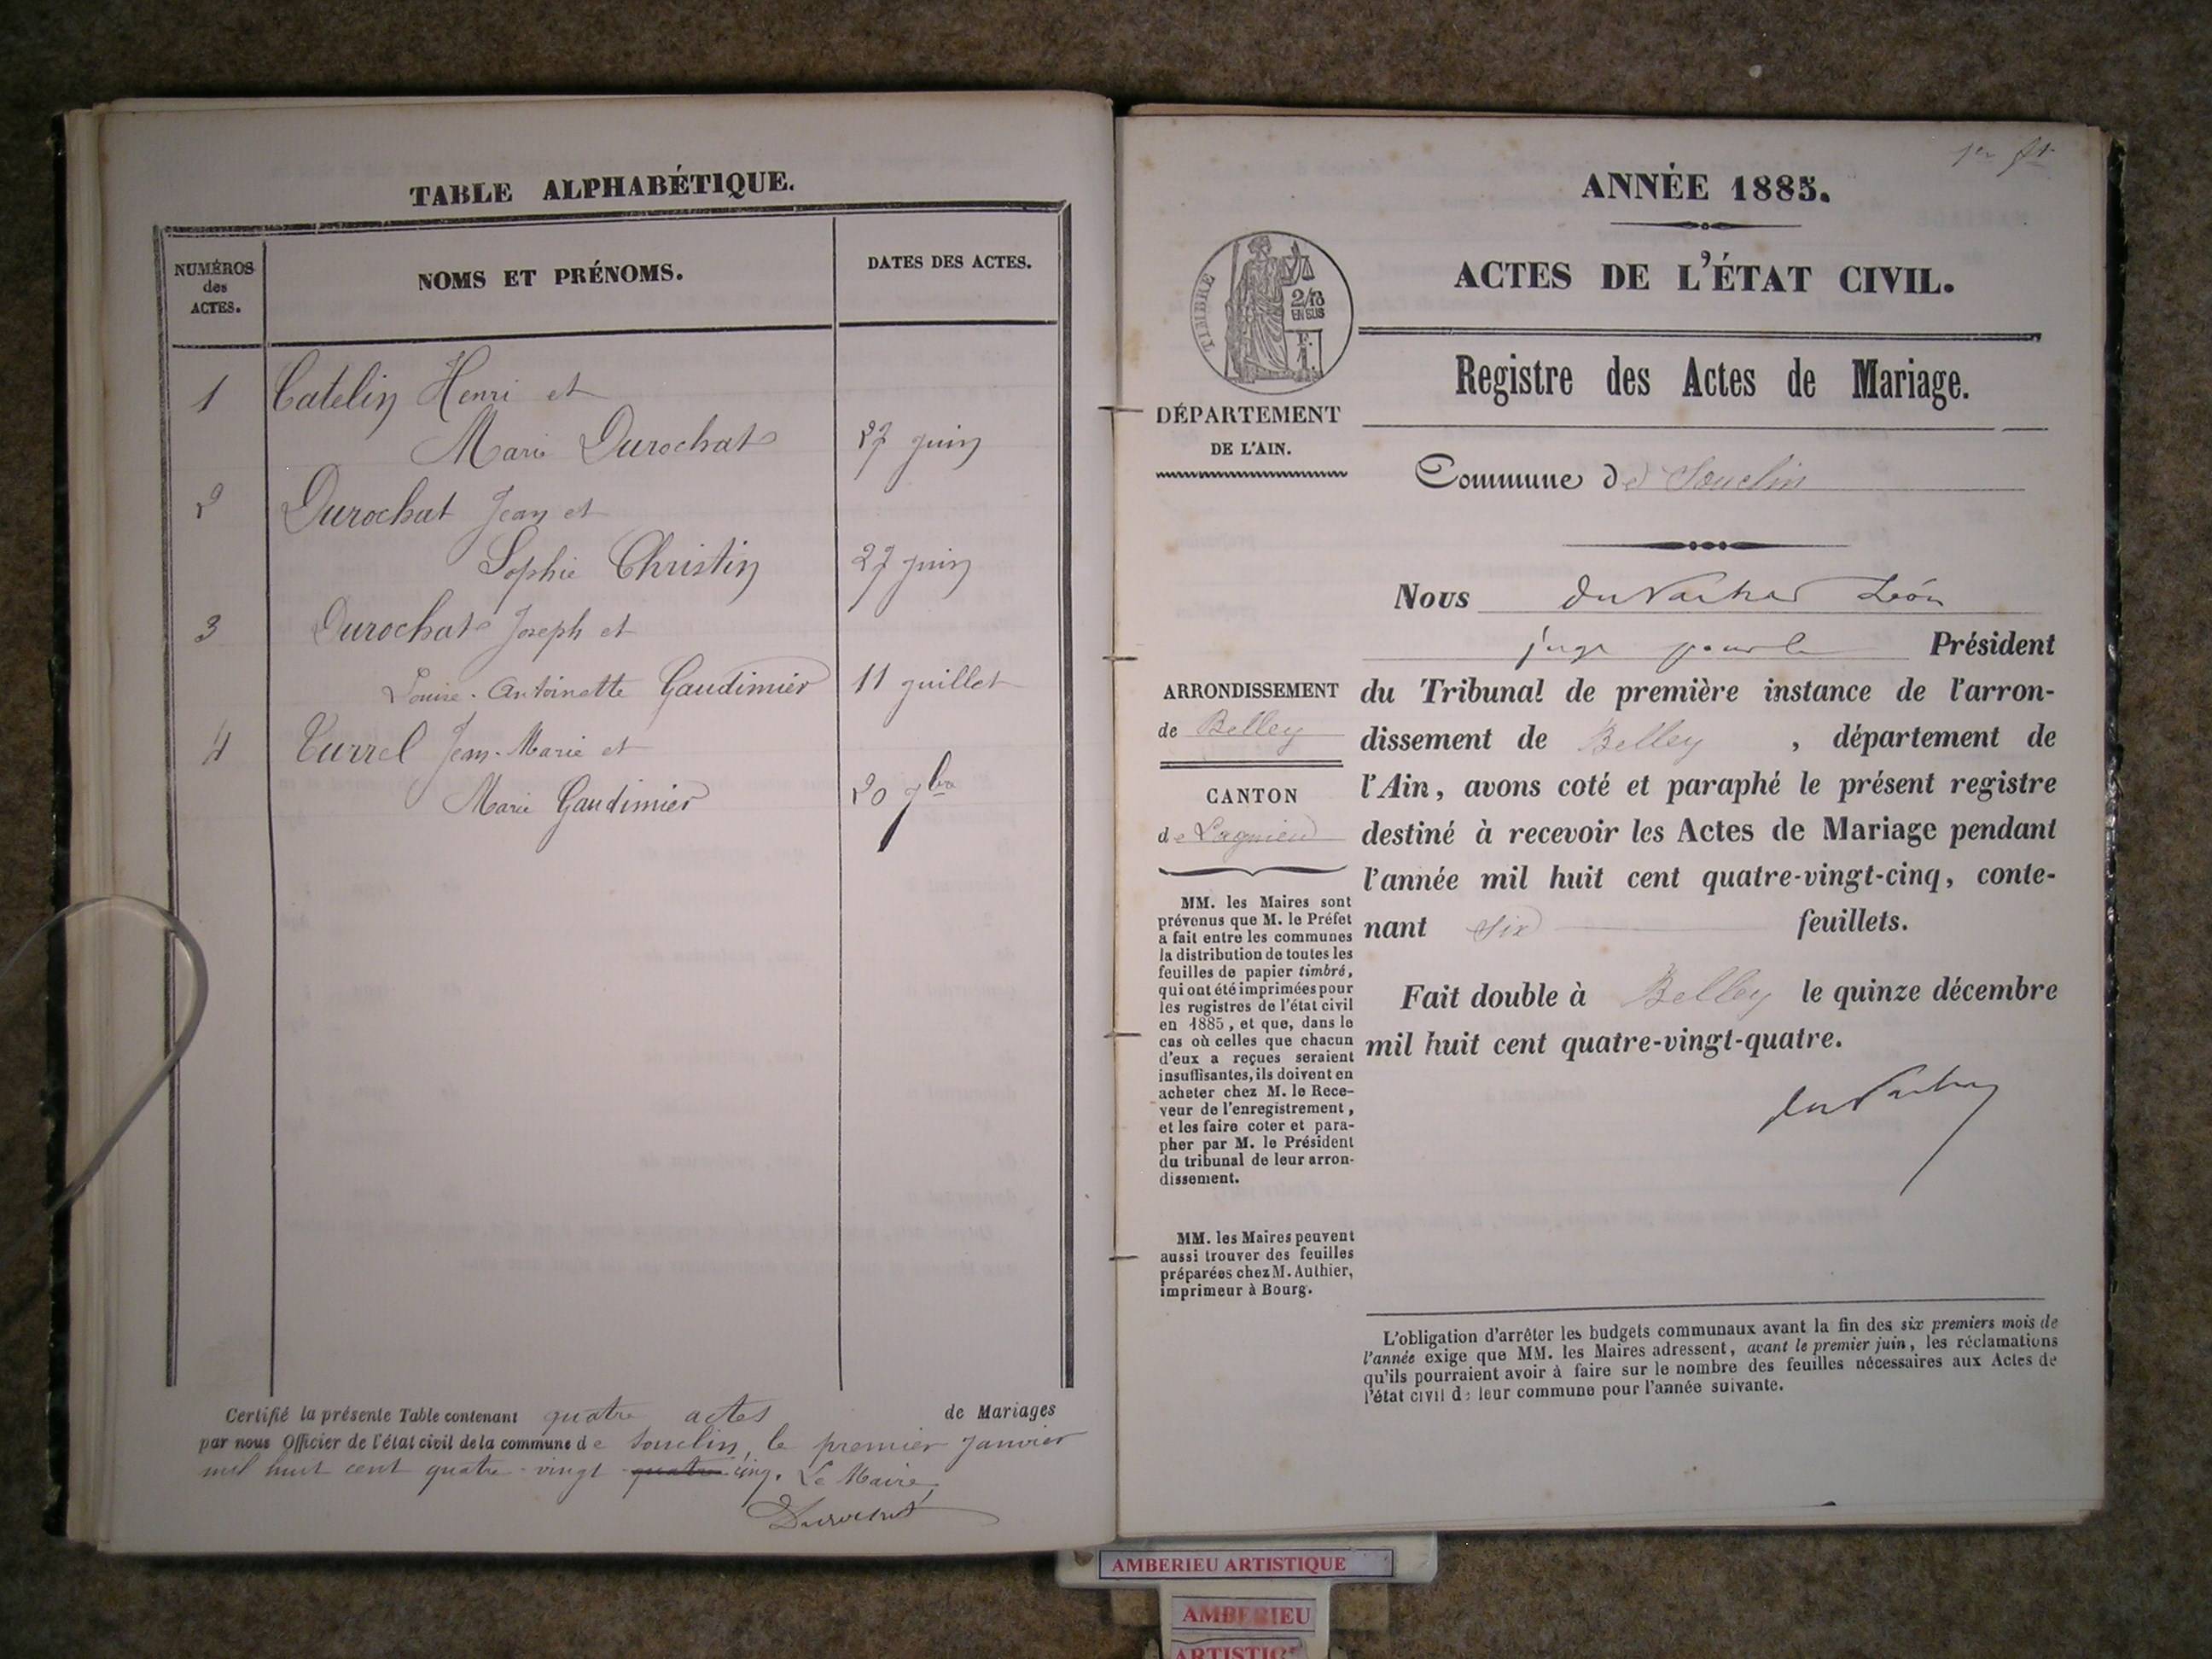 TABLE ALPHABÉTIQUE.
NUMÉROS
des
ACTES.
NOMS ET PRÉNOMS.
DATES DES ACTES.
1 Catelin Henri et
Marie Durochat 27 juin
2 Durochat Jean et
Sophie Christin 27 juin
3 Durochat Joseph et
Louise-Antoinette Gaudimier 11 juillet
4 Turrel Jean-Marie et
Marie Gaudimier 20 9bre
Certifié la présente Table contenant quatre actes de Mariages
par nous Officier de l'état civil de la commune de Souclin, le premier janvier
mil huit cent quatre-vingt-quatre cinq. Le Maire,
Durochat
1er ft
ANNÉE 1885.
ACTES DE L'ÉTAT CIVIL.
TIMBRE
2/10
EN SUS
Registre des Actes de Mariage.
DÉPARTEMENT
DE L'AIN.
Commune de Souclin
Nous Léon
juge pour le Président
ARRONDISSEMENT
de Belley
CANTON
de Lagnieu
du Tribunal de première instance de l'arron-
dissement de Belley, département de
l'Ain, avons coté et paraphé le présent registre
destiné à recevoir les Actes de Mariage pendant
l'année mil huit cent quatre-vingt-cinq, conte-
nant six feuillets.
Fait double à Belley le quinze décembre
mil huit cent quatre-vingt-quatre.
MM. les Maires sont
prévenus que M. le Préfet
a fait entre les communes
la distribution de toutes les
feuilles de papier timbré,
qui ont été imprimées pour
les registres de l'état civil
en 1885, et que, dans le
cas où celles que chacun
d'eux a reçues seraient
insuffisantes, ils doivent en
acheter chez M. le Rece-
veur de l'enregistrement,
et les faire coter et para-
pher par M. le Président
du tribunal de leur arron-
dissement.
MM. les Maires peuvent
aussi trouver des feuilles
préparées chez M. Authier,
imprimeur à Bourg.
L'obligation d'arrêter les budgets communaux avant la fin des six premiers mois de
l'année exige que MM. les Maires adressent, avant le premier juin, les réclamations
qu'ils pourraient avoir à faire sur le nombre des feuilles nécessaires aux Actes de
l'état civil de leur commune pour l'année suivante.
AMBERIEU ARTISTIQUE
AMBERIEU
ARTISTIQ